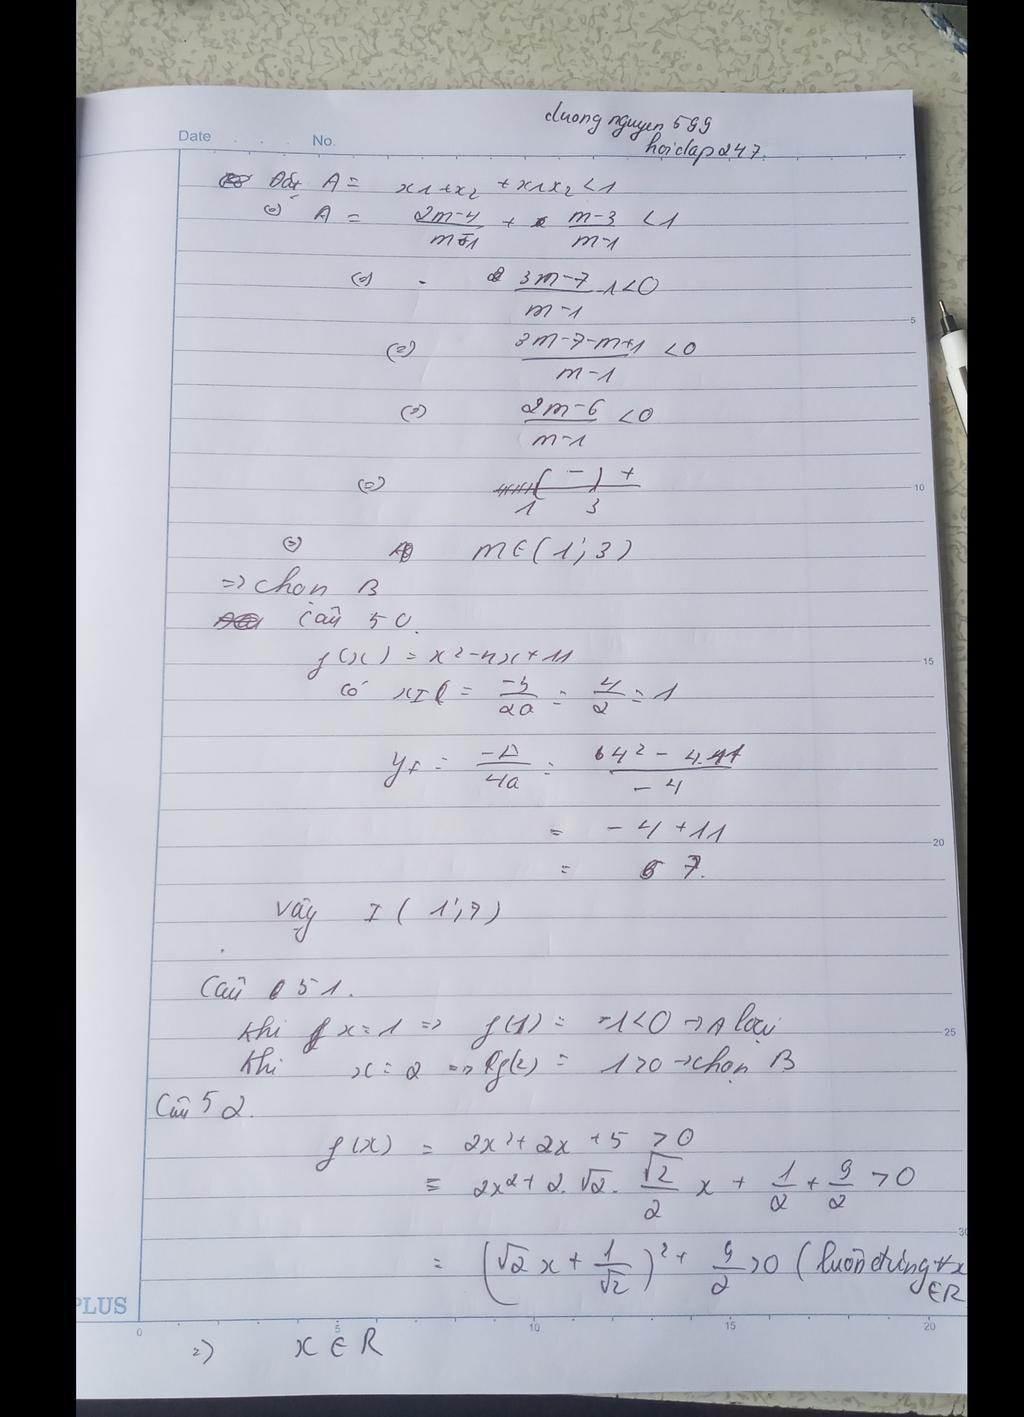 duong nguyen 599
hoidap247.
Date No.
Đặt A = x1+x2 + x1x2 < 1
(=) A = 2m-4/m-1 + m-3/m-1 < 1
(=) 3m-7/m-1 -1<0
(=) 3m-7-m+1/m-1 <0
(=) 2m-6/m-1 <0
(=) ( - ) +
1 3
(=) m∈(1;3)
=> chọn B
Câu 50.
f(x) = x²-4x+11
có xI = -b/2a = 4/2 = 1
yI = -Δ/4a = 4²-4.11/-4
= -4+11
= 7.
Vậy I(1;7)
Câu 51.
Khi x=1 => f(1) = -1<0 -> A loại
Khi x=2 => f(2) = 1>0 -> chọn B
Câu 52.
f(x) = 2x²+2x+5 >0
= 2x²+2.√2.√2/2 x + 1/2 + 9/2 >0
= (√2x + 1/√2)² + 9/2 >0 (luôn đúng ∀x
∈R
=) x∈R
PLUS
5
10
15
20
25
30
0 5 10 15 20